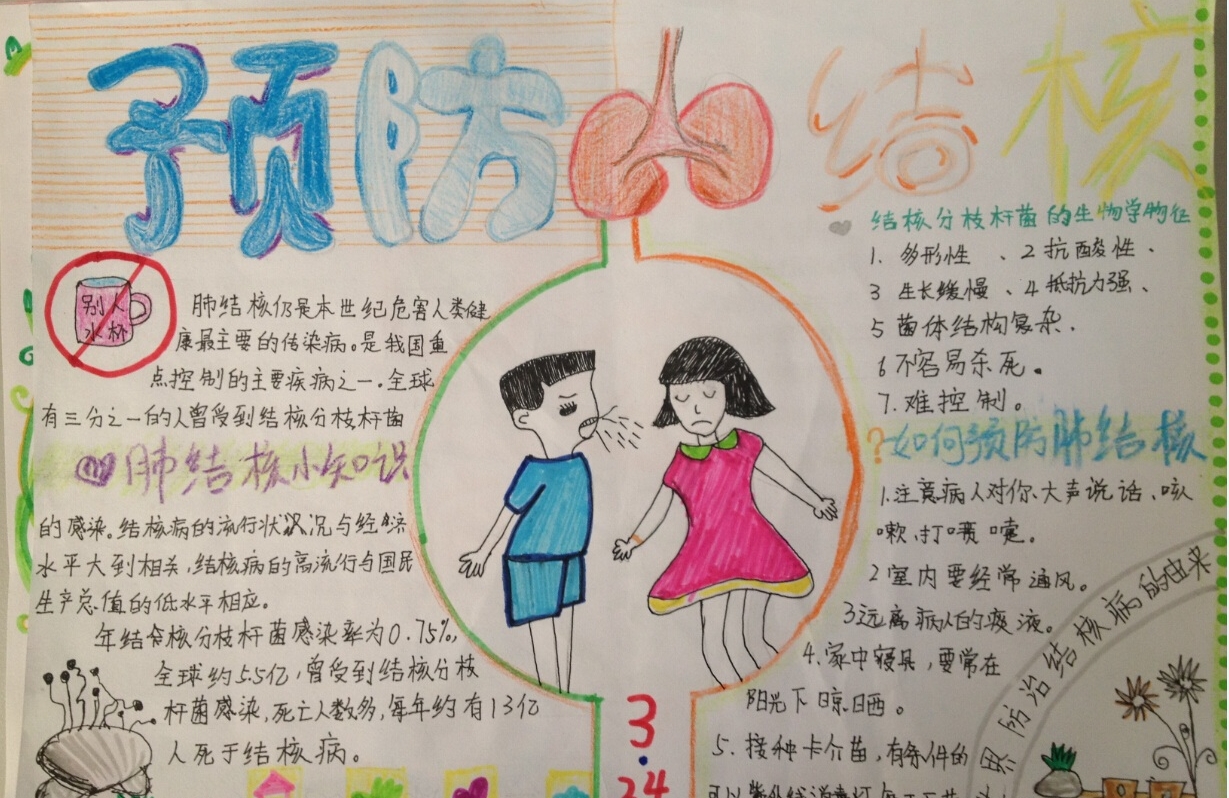 预防结核
别人
水杯
肺结核仍是本世纪危害人类健
康最主要的传染病。是我国重
点控制的主要疾病之一。全球
有三分之一的人曾受到结核分枝杆菌
肺结核小知识
的感染。结核病的流行状况与经济
水平大到相关,结核病的高流行与国民
生产总值的低水平相应。
年结核分枝杆菌感染率为0.75%,
全球约5.5亿,曾受到结核分枝
杆菌感染,死亡人数多,每年约有13亿
人死于结核病。
3
24
结核分枝杆菌的生物学特征
1. 多形性 、2 抗酸性 、
3 生长缓慢 、4 抵抗力强、
5 菌体结构复杂.
6 不容易杀死。
7. 难控制。
?如何预防肺结核
1.注意病人对你、大声说话、咳
嗽、打喷嚏。
2 室内要经常通风。
3远离病人的痰液。
4.家中寝具,要常在
阳光下晾晒。
5. 接种卡介苗,有条件的
界防治结核病的由来